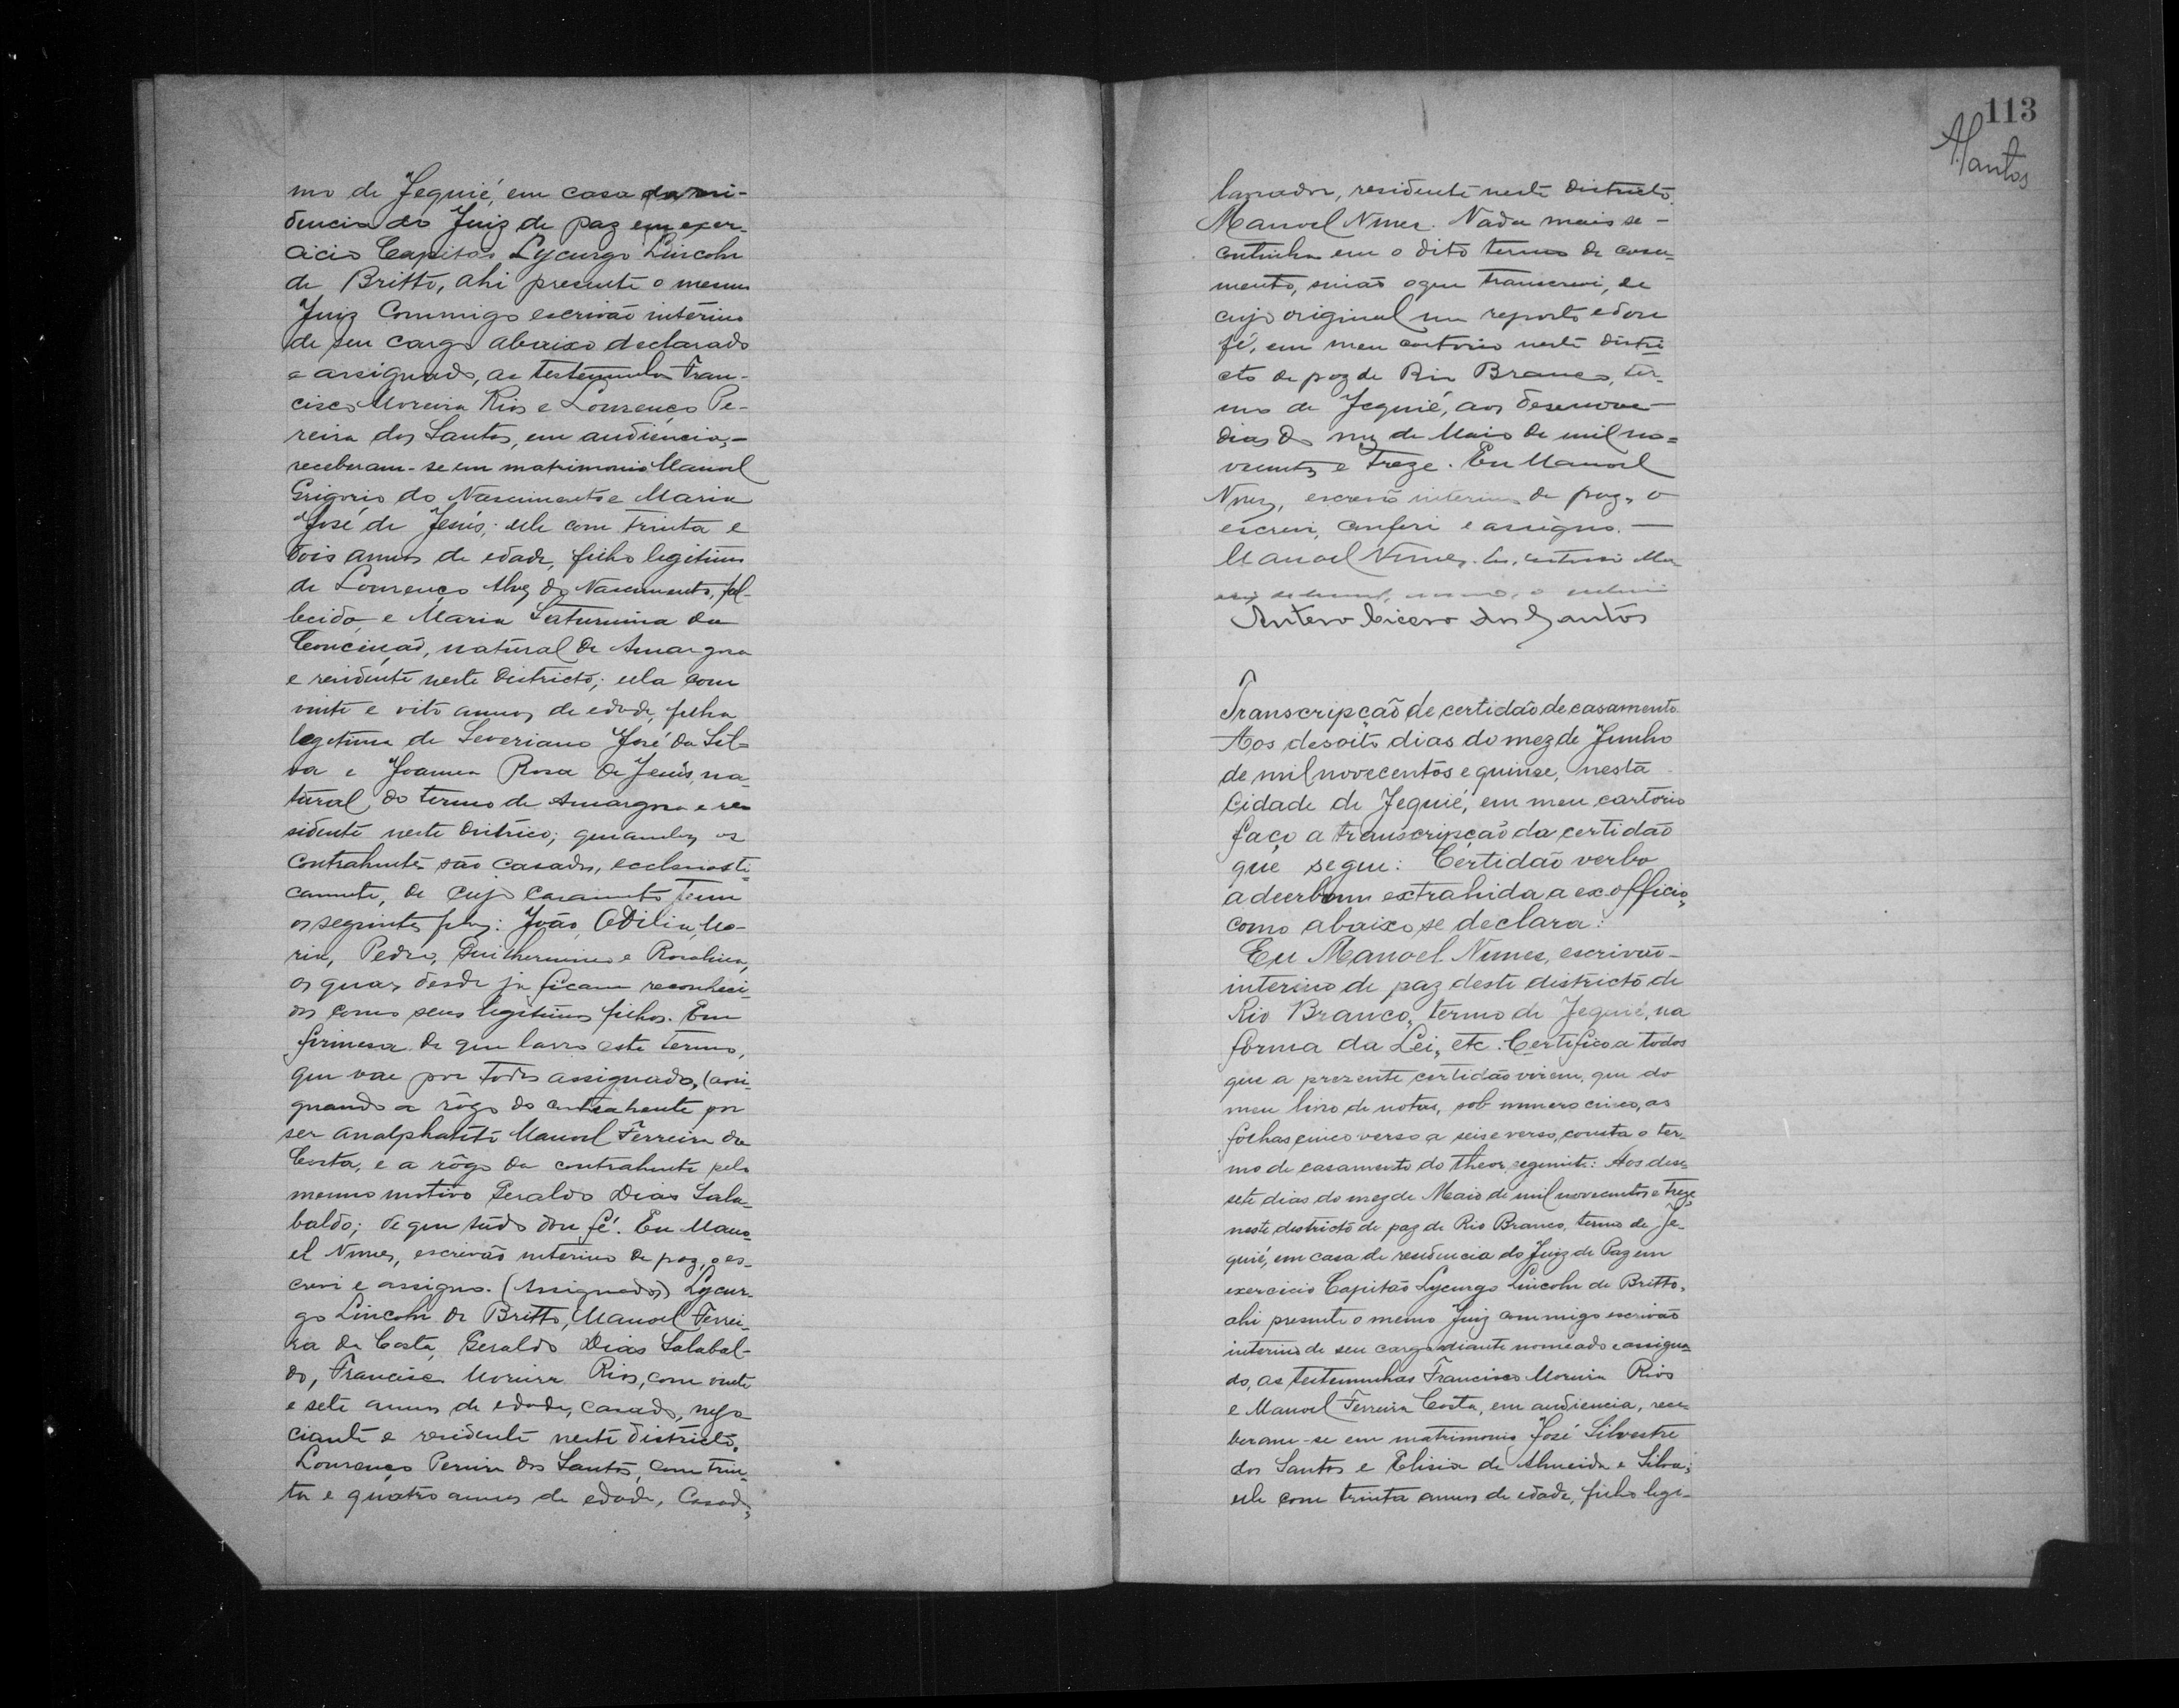 mo de Jequié, em casa da resi-
dencia do Juiz de paz em exer-
cicio Capitão Lycurgo Lincoln
de Britto, ahi presente o mesmo
Juiz Commigo escrivão interino
de seu cargo abaixo declarado
e assignado, as testemunhas Fran-
cisco Moreira Rios e Lourenço Pe-
reira dos Santos, em audiencia,-
receberam-se em matrimonio Manoel
Grigorio do Nascimento e Maria
José de Jesús; elle com trinta e
dois annos de edade, filho legitimo
de Lourenço Alves do Nascimento, fal-
lecido e Maria Saturnina da
Conceição, natural de Amargosa
e residente neste districto; ella com
vinte e oito annos de edade, filha
legitima de Severiano José da Sil=
va e Joanna Rosa de Jesús, na-
tural do termo de Amargosa e re
sidente neste districo; que ambos os
contrahentes são casados, ecclesiasti=
camente, de cujo casamento tem
os seguintes filhos: João, Odilia, Ma-
ria, Pedro, Guilhermina e Rosalina,
os quaes desde já ficam reconheci-
dos como seus legitimos filhos. Em
firmesa de que lavro este termo,
que vae por todos assignado, (assi-
gnando a rôgo do contrahente por
ser analphabeto Manoel Ferreira da
Costa, e a rôgo da contrahente pelo
mesmo motivo Geraldo Dias Sala-
baldo; de que tudo dou fé. Eu Mano-
el Nunes, escrivão interino de paz, o es-
crevi e assigno. (Assignados) Lycur-
go Lincoln de Britto, Manoel Ferrei-
ra da Costa, Geraldo Dias Salabal-
do, Francisco Moreira Rios, com vinte
e sete annos de edade, casado, nego
ciante e residente neste districto.
Lourenço Pereira dos Santos, com trin-
ta e quatro annos de edade, Casado,
113
ASantos
lavrador, residente neste districto.
Manoel Nunes. Nada mais se-
continha em o dito termo de casa-
mento, sinão o que transcrevi, de
cujo original me reporto e dou
fé, em meu cartorio neste distri-
cto de paz de Rio Branco, ter-
mo de Jequié, aos desenove
dias do mez de Maio de mil no=
vecentos e treze. Eu Manoel
Nunes, escrivão interino de paz, o
escrevi, conferi e assigno.-
Manoel Nunes.
Antero Cicero dos Santos
Transcripção de certidão de casamento
Aos desoito dias do mez de Junho
de mil novecentos e quinse, nesta
Cidade de Jequié, em meu cartorio
faço a transcripção da certidão
que segue: Certidão verbo
adverbum extrahida a ex officio,
como abaixo se declara:
Eu Manoel Nunes, escrivão-
interino de paz deste districto de
Rio Branco, termo de Jequié, na
forma da Lei, etc. Certifico a todos
que a prezente certidão virem, que do
meu livro de notas, sob numero cinco, as
folhas cinco verso a seis e verso, consta o ter-
mo de casamento do theor seguinte: Aos dese-
sete dias do mez de Maio de mil novecentos e treze,
neste districto de paz de Rio Branco, termo de Je-
quié, em casa de residencia do Juiz de Paz em
exercicio Capitão Lycurgo Lincoln de Britto,
ahi presente o mesmo Juiz commigo escrivão
interino de seu cargo adiante nomeado e assigna-
do, as testemunhas Francisco Moreira Rios
e Manoel Ferreira Costa, em audiencia, rece-
beram-se em matrimonio José Silvestre
dos Santos e Elisia de Almeida e Silva;
elle com trinta annos de edade, filho legi-